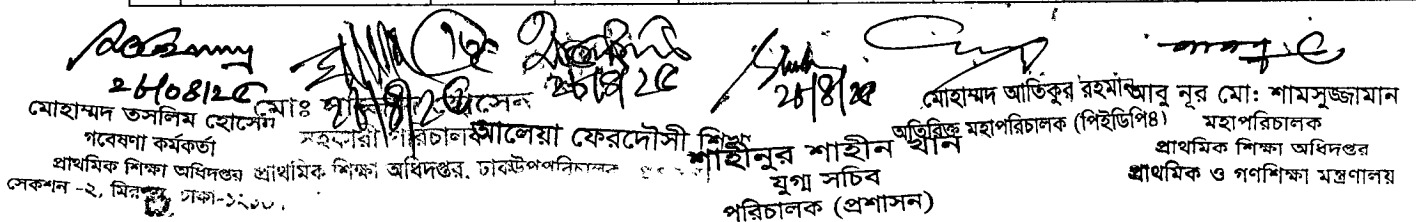 ২৮/০৪/২৫
মোহাম্মদ তসলিম হোসেন
গবেষণা কর্মকর্তা
প্রাথমিক শিক্ষা অধিদপ্তর
সেকশন -২, ঢাকা-
মোঃ
সহকারী পরিচালক
প্রাথমিক শিক্ষা অধিদপ্তর, ঢাকা
২৮/৪/২৫
আলেয়া ফেরদৌসী
২৮/৪/২৫
শাহীনুর শাহীন খান
যুগ্ম সচিব
পরিচালক (প্রশাসন)
মোহাম্মদ আতিকুর রহমান
অতিরিক্ত মহাপরিচালক (পিইডিপি৪)
আবু নূর মো: শামসুজ্জামান
মহাপরিচালক
প্রাথমিক শিক্ষা অধিদপ্তর
প্রাথমিক ও গণশিক্ষা মন্ত্রণালয়